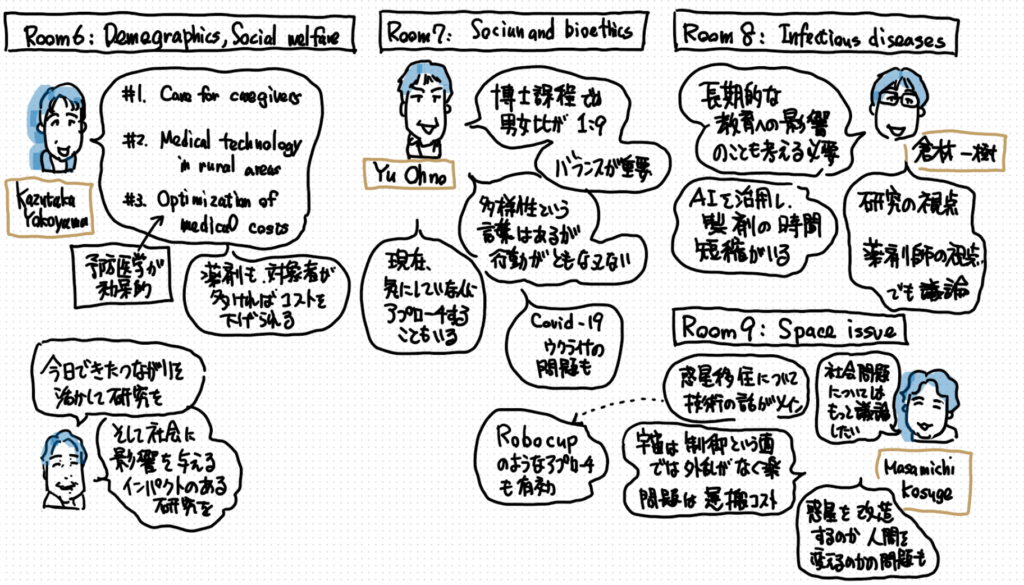 Room 6: Demographics, Social welfare
#1. Care for caregivers
#2. Medical technology
in rural areas
#3. Optimization of
medical costs
Kazutaka
Yokoyama
予防医学が
効果的
薬剤も、対象者が
多ければコストを
下げられる
今日できたつながりを
活かして研究を
そして社会に
影響を与える
インパクトのある
研究を
Room 7:
and bioethics
Yu Ohno
博士課程も
男女比が 1:9
バランスが重要
多様性という
言葉はあるが
行動がともなえない
現在、
気にしていない人に
アプローチする
こともいる
Covid-19
ウクライナの
問題も
Room 8: Infectious diseases
長期的な
教育への影響
のことも考える必要
一樹
AIを活用し、
製剤の時間
短縮がいる
研究の視点
薬剤師の視点
でも議論
Room 9: Space issue
惑星移住について
技術の話がメイン
社会問題
については
もっと議論
したい
Masamichi
Kosuge
Robocup
のようなアプローチ
も有効
宇宙は制御という面
では外乱がなく楽
問題は運搬コスト
惑星を改造
するのか人間を
変えるのかの問題も